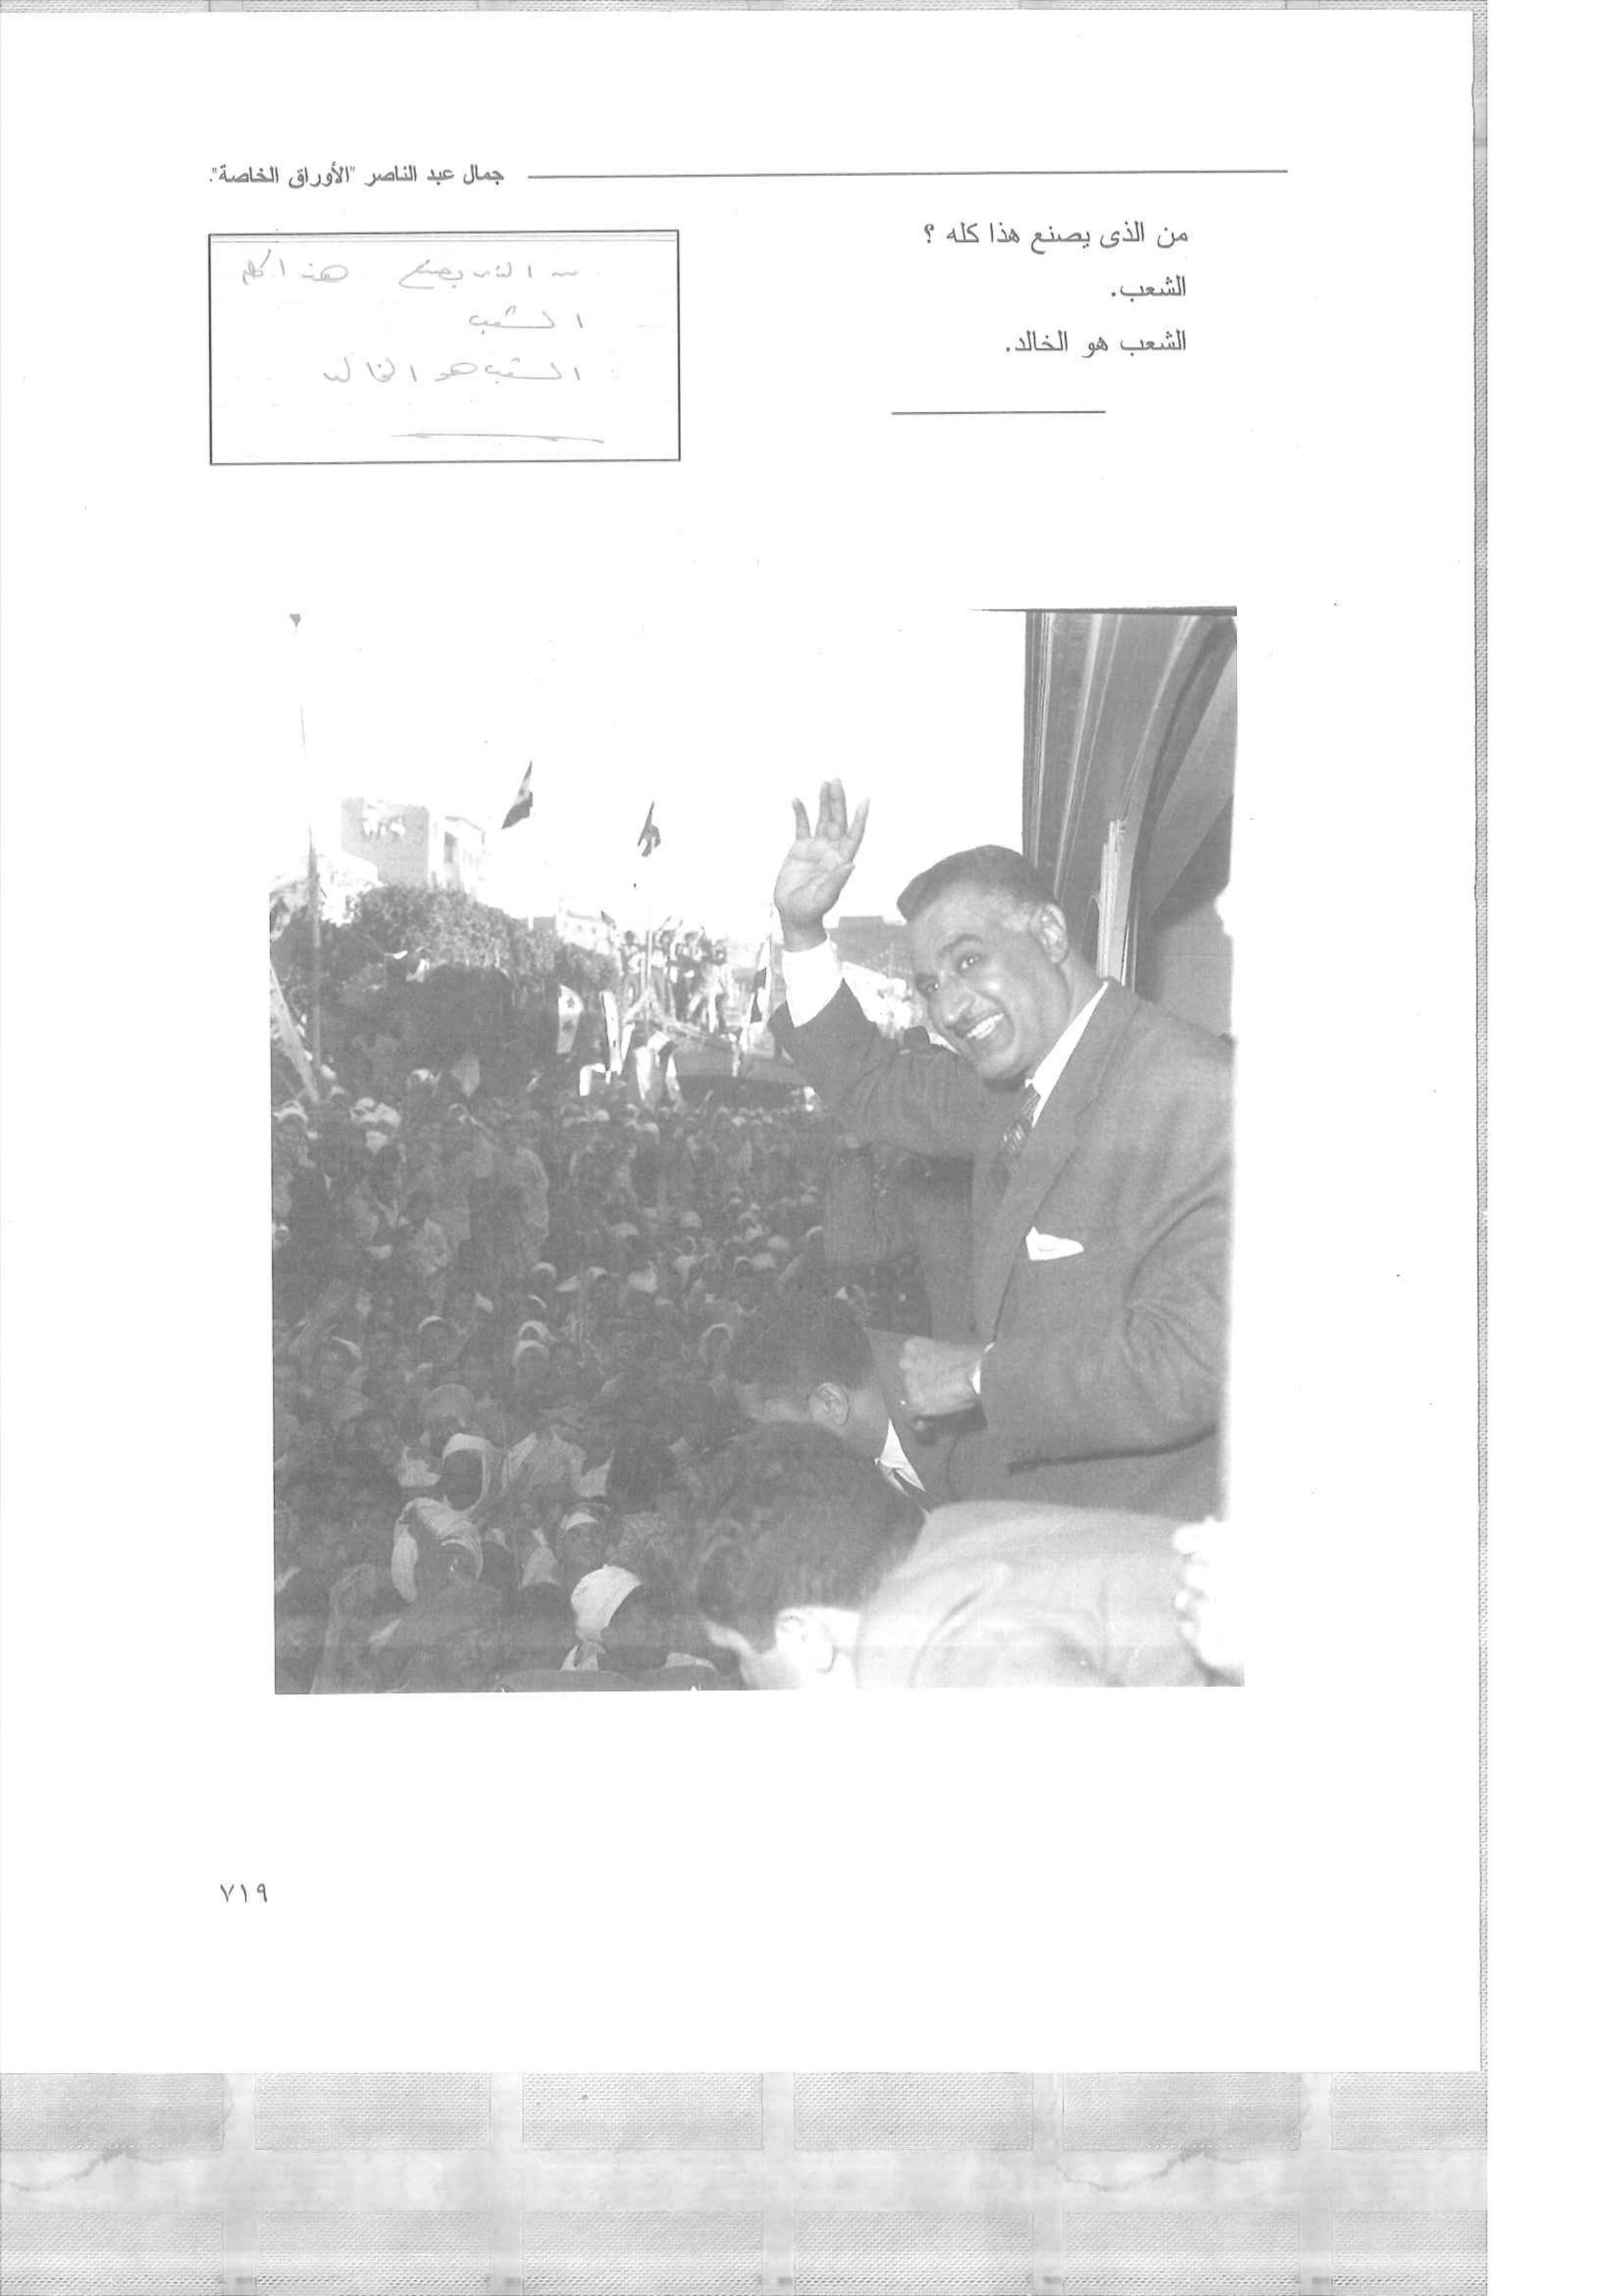 جمال عبد الناصر "الأوراق الخاصة".
من الذى يصنع هذا كله ؟
الشعب.
الشعب هو الخالد.
من الذى يصنع هذا كله
الشعب
الشعب هو الخالد
٧١٩